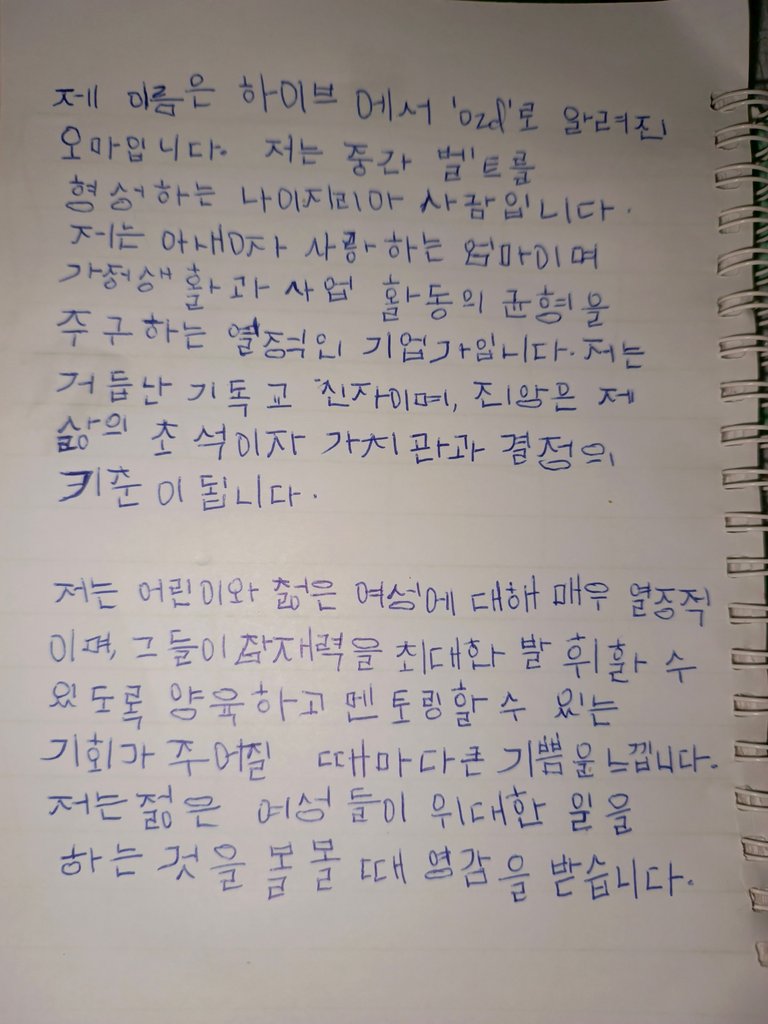 제 이름은 하이브에서 'ozd'로 알려진
오마입니다. 저는 중간 벨트를
형성하는 나이지리아 사람입니다.
저는 아내이자 사랑하는 엄마이며
가정생활과 사업 활동의 균형을
추구하는 열정적인 기업가입니다. 저는
거듭난 기독교 신자이며, 신앙은 제
삶의 초석이자 가치관과 결정의
기준이 됩니다.
저는 어린이와 젊은 여성에 대해 매우 열정적
이며, 그들이 잠재력을 최대한 발휘할 수
있도록 양육하고 멘토링할 수 있는
기회가 주어질 때마다 큰 기쁨을 느낍니다.
저는 젊은 여성들이 위대한 일을
하는 것을 볼 볼 때 영감을 받습니다.